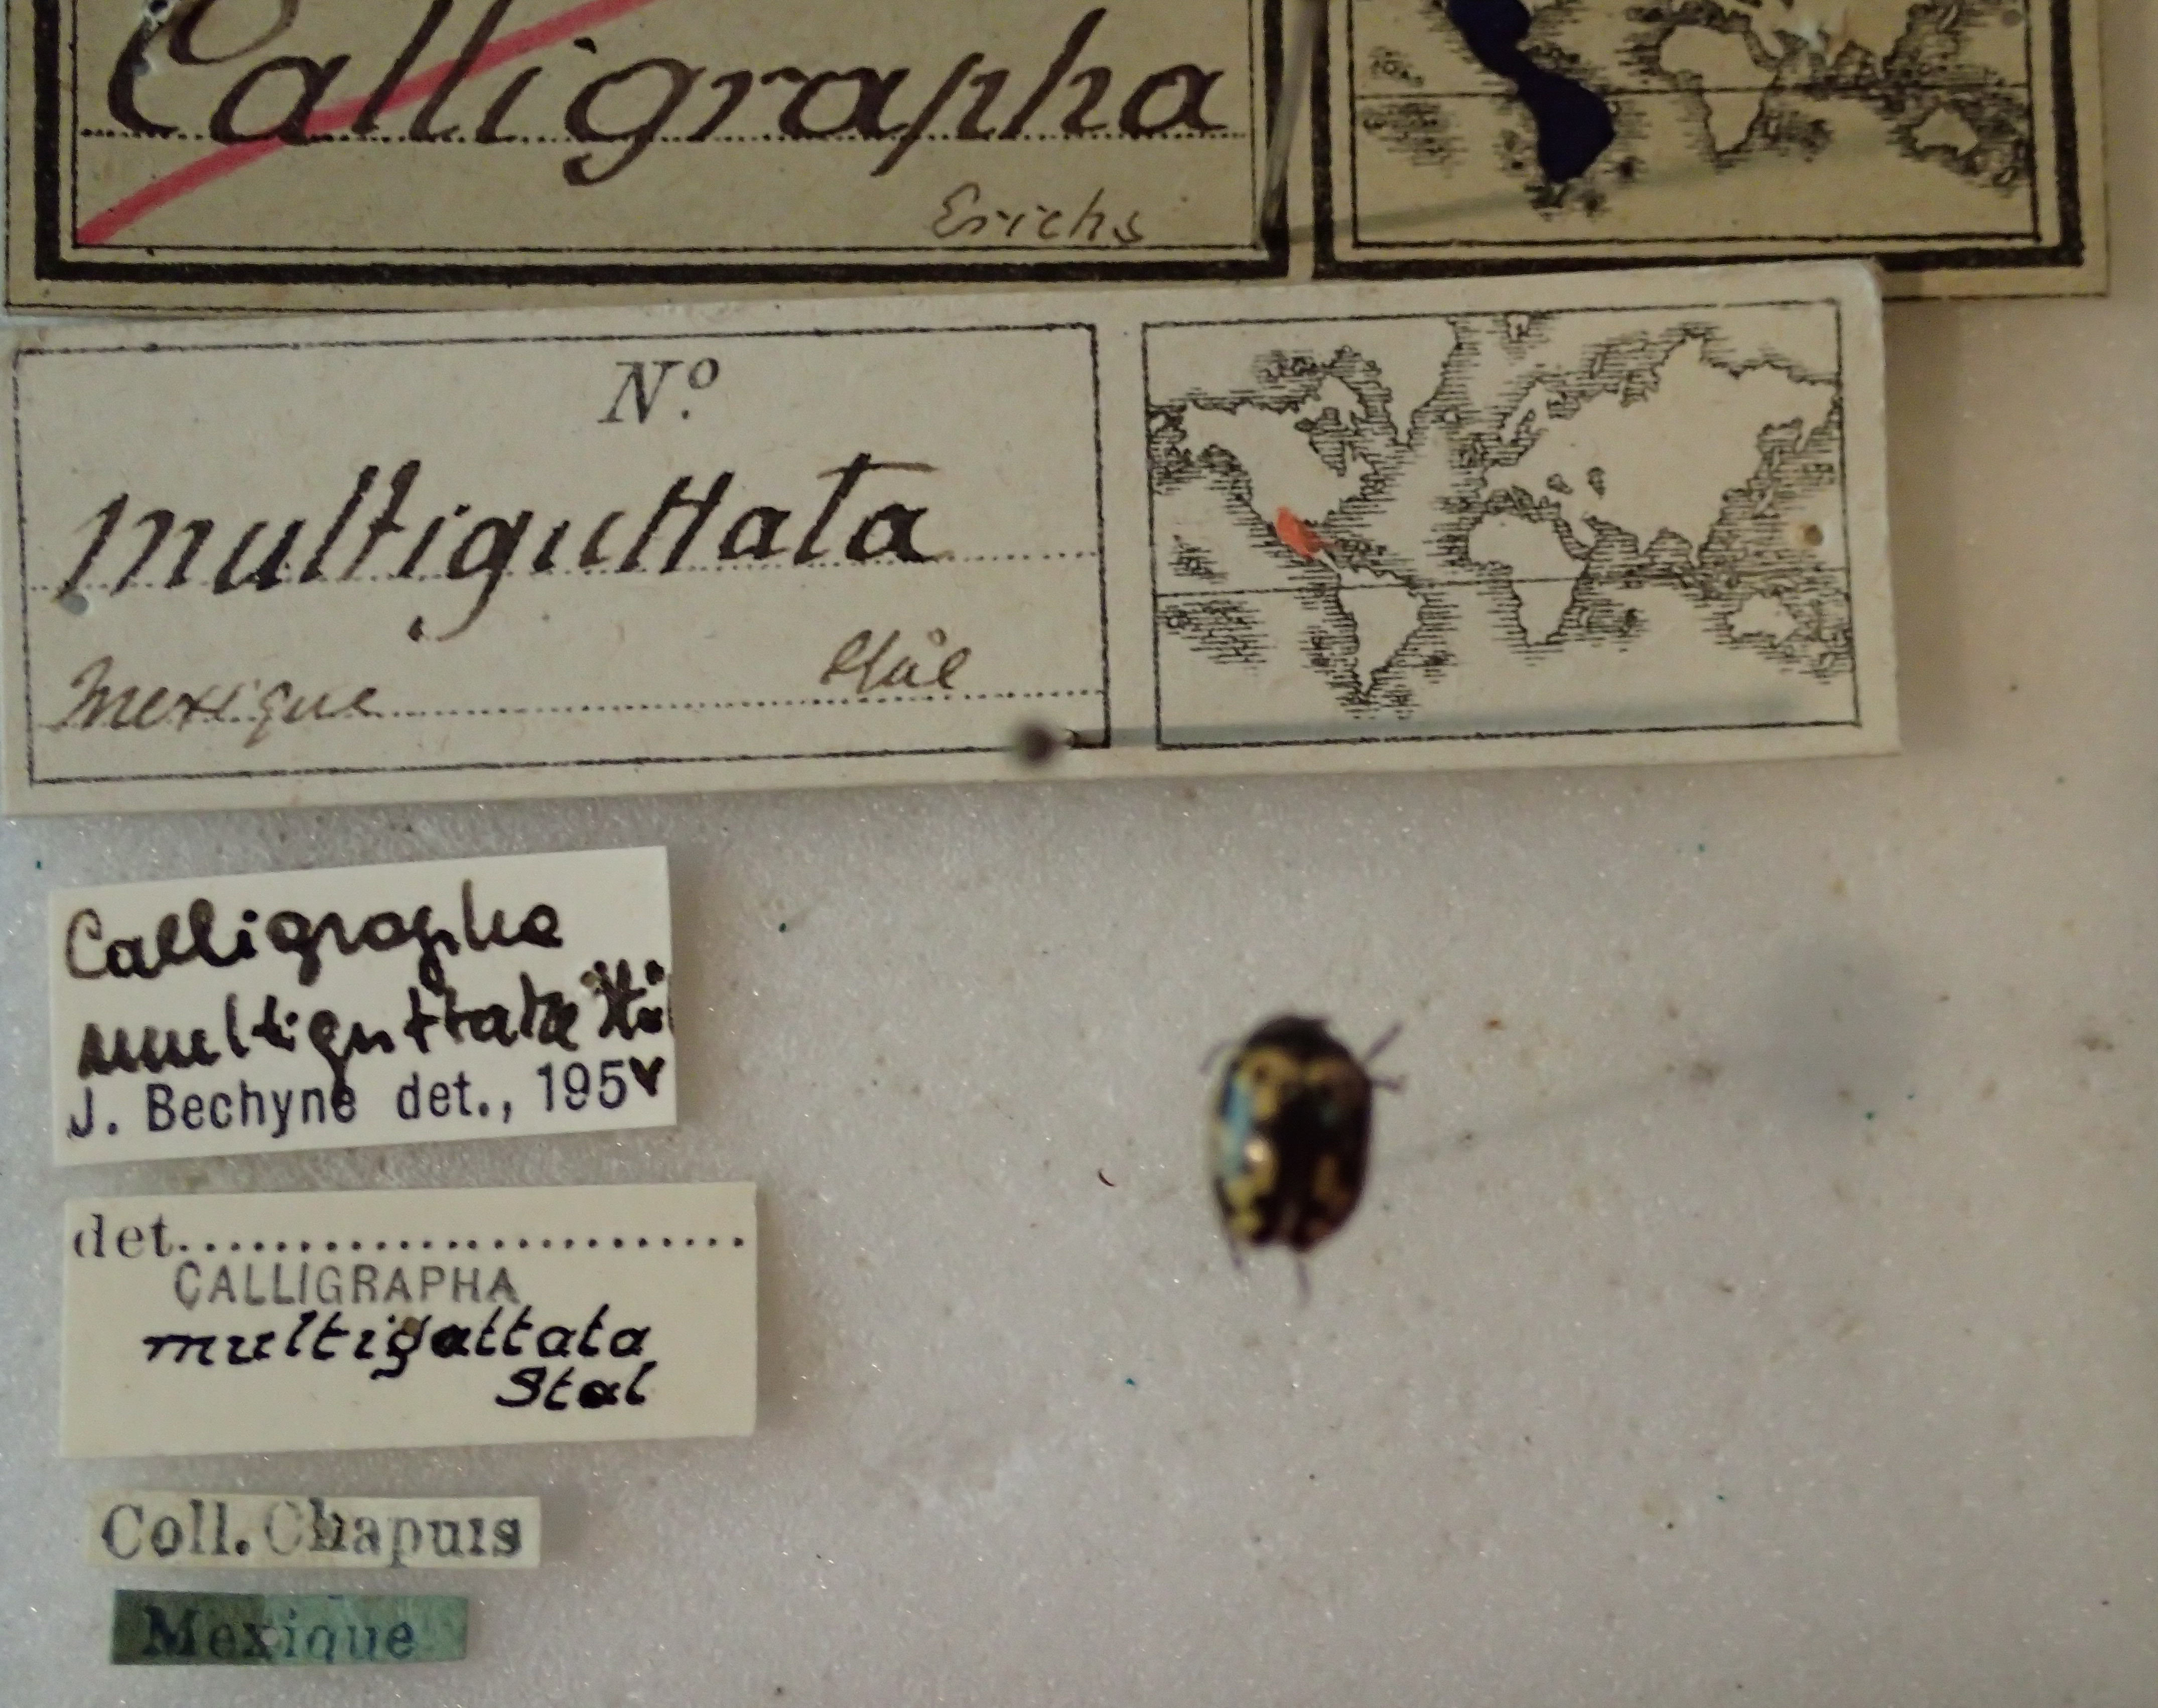 Calligrapha
Erichs
Nº
multiguttata
Mexique Stål
Calligrapha
multiguttata Stål
J. Bechyne det., 195
det.
CALLIGRAPHA
multiguttata
Stal
Coll. Chapuis
Mexique